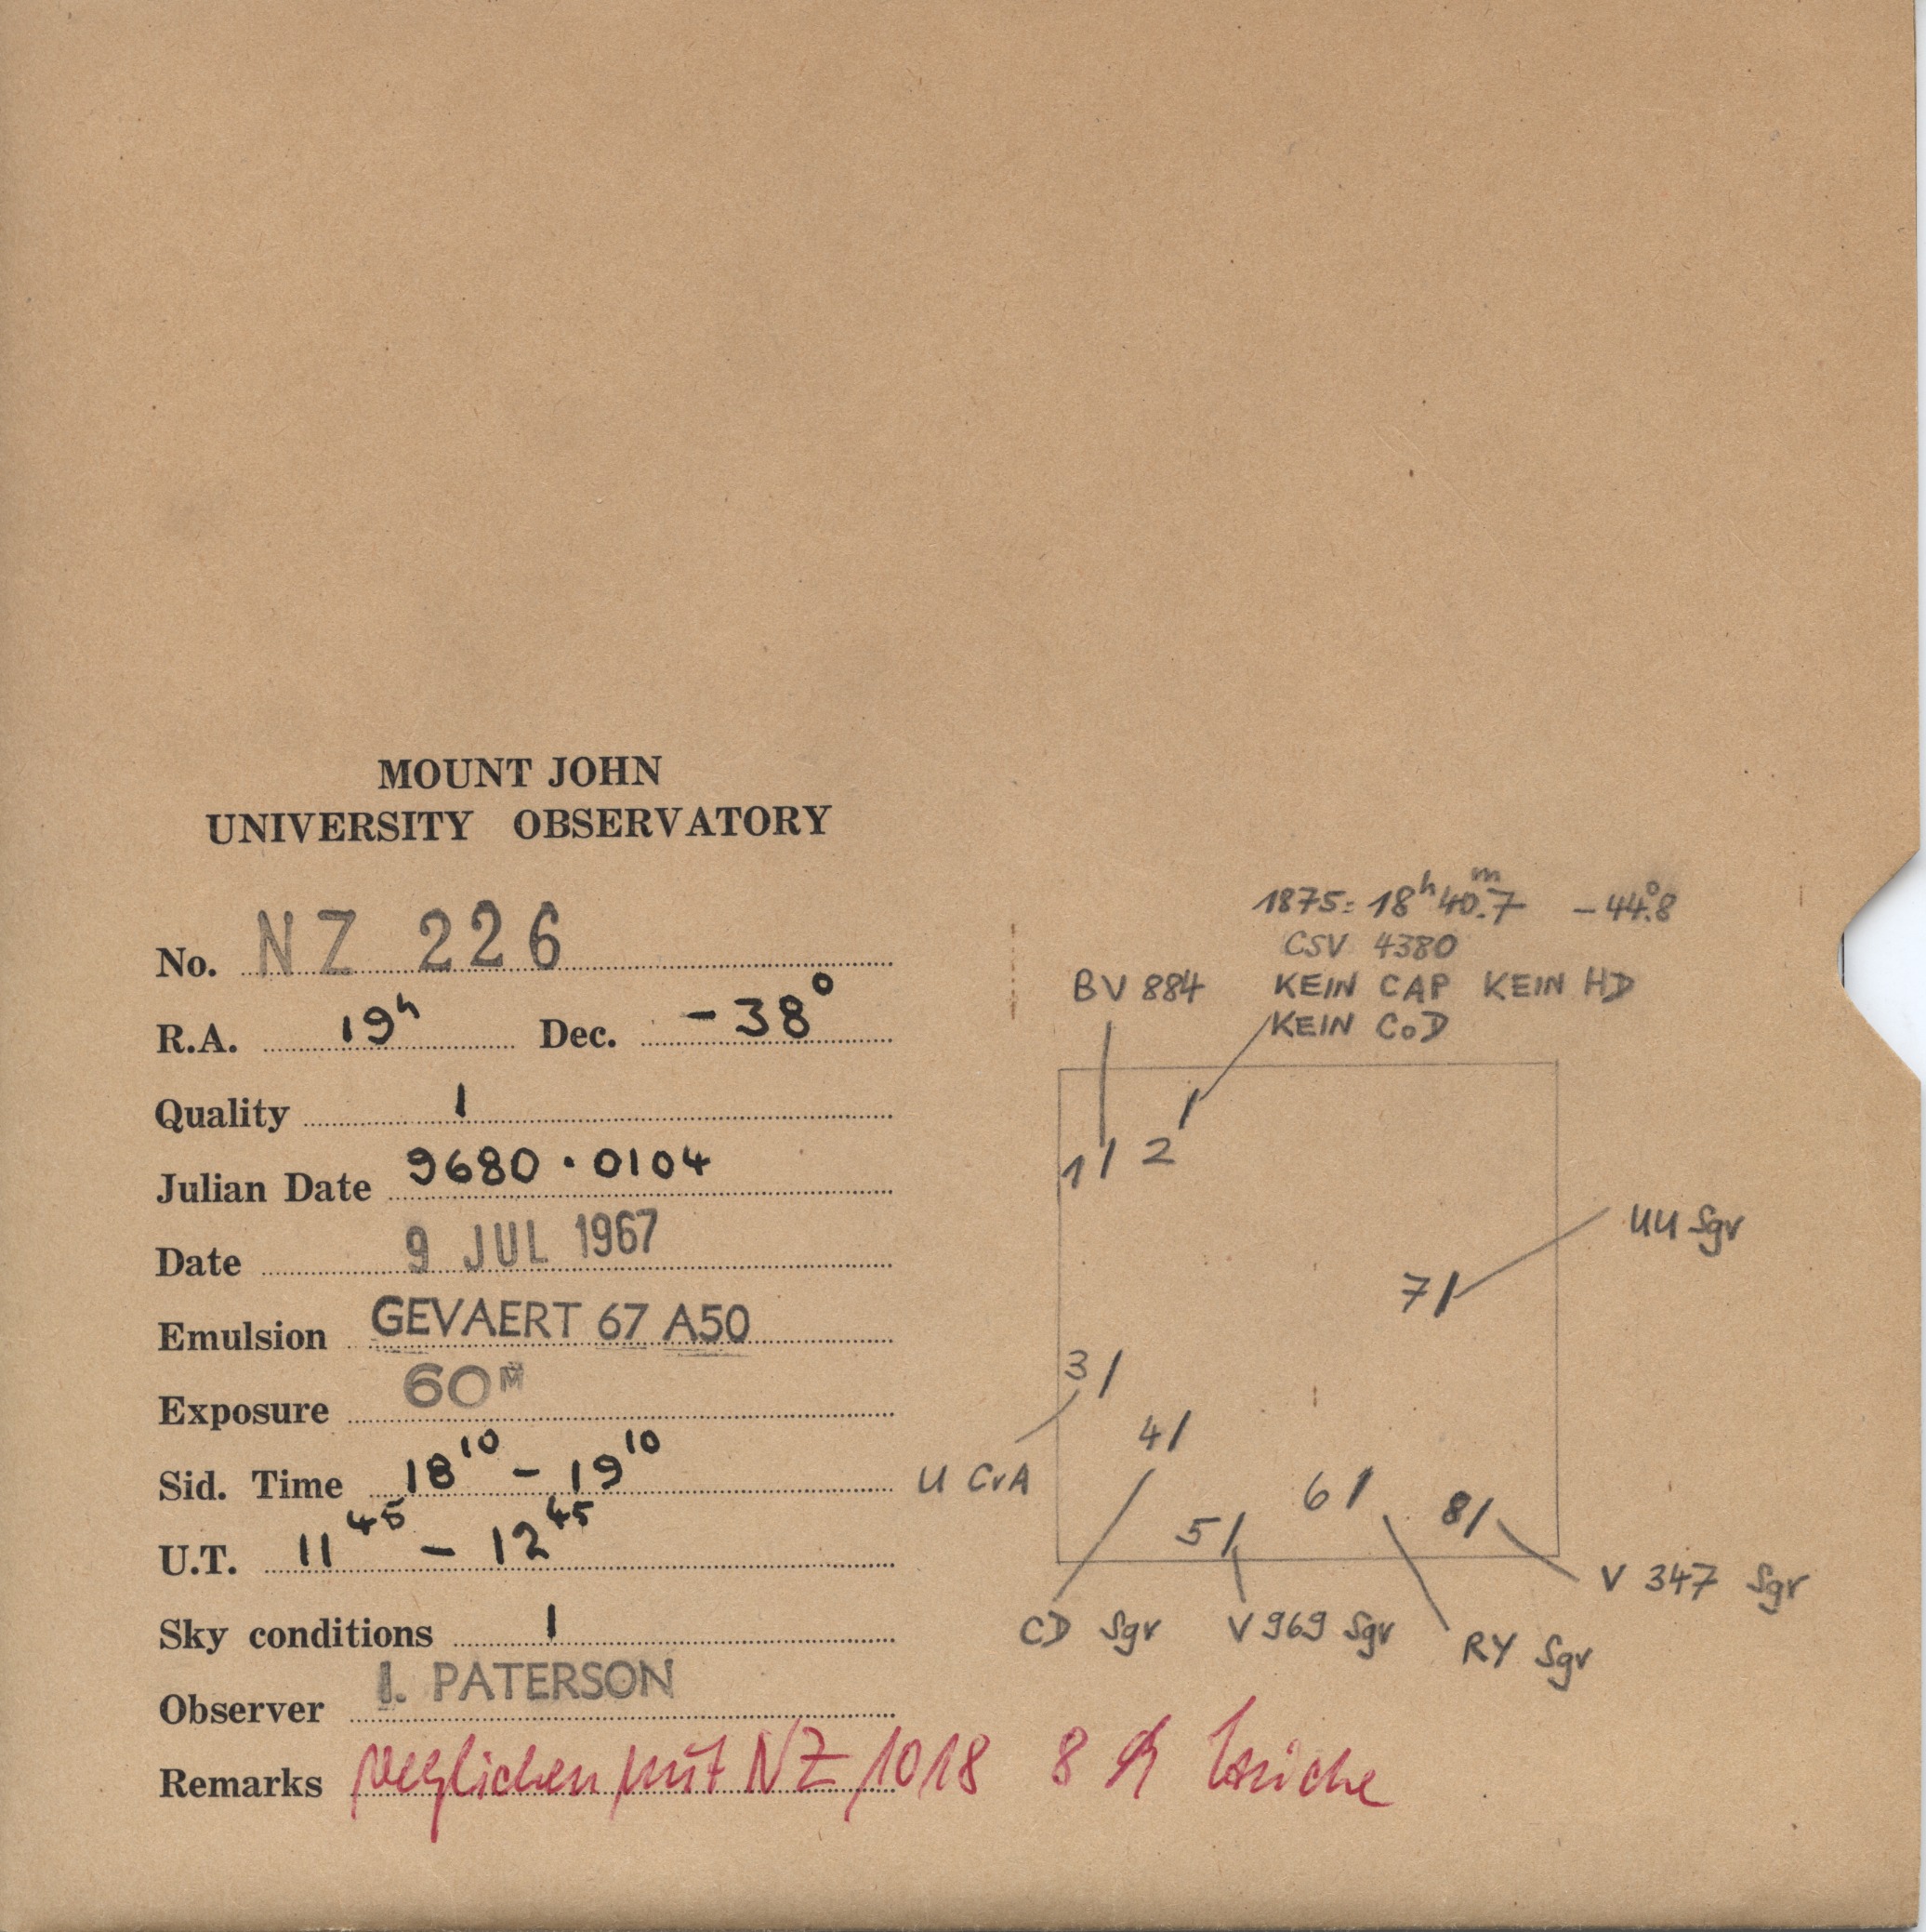 MOUNT JOHN
UNIVERSITY OBSERVATORY
No. NZ 226
R.A. 19h Dec. -38°
Quality 1
Julian Date 9680.0104
Date 9 JUL 1967
Emulsion GEVAERT 67 A50
Exposure 60M
Sid. Time 18 10 - 19 10
U.T. 11 45 - 12 45
Sky conditions 1
Observer I. PATERSON
Remarks verglichen mit NZ 1018 8 Striche
1875: 18h 40m.7 -44°.8
CSV 4380
BV 884 KEIN CAP KEIN HD
KEIN CoD
1 2
UU Sgr
7
3
4
U CrA
6 8
5
V 347 Sgr
CD Sgr V 969 Sgr RY Sgr